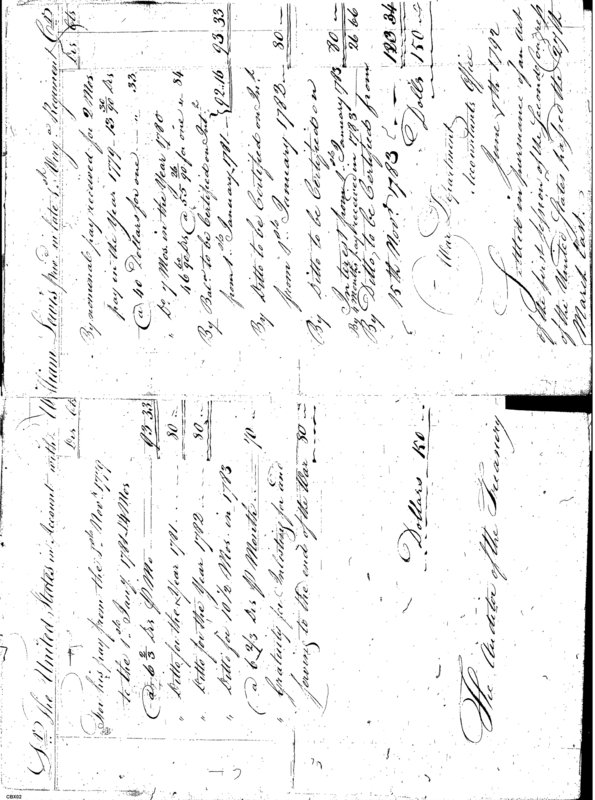 Dr. The United States in Account with William Lewis priv'd in late 1st Mary'd Regiment Cr
Drs Cts
For his pay from the 1st Novr 1779
to the 1st Jany 1781 14 Mos
@ 6 2/3 Drs pr Mo 93 33
" Ditto for the Year 1781 80
" Ditto for the Year 1782 80
" Ditto for 10 1/2 Mos. in 1783
@ 6 2/3 Drs pr Month 70
" Gratuity for Inlisting for and
serving to the end of the War 80
Dollars 150
The Auditor of the Treasury
Drs Cts
By nominal pay received for 2 Mos
pay in the Year 1779
@ 40 Dollars for one 33
Do 7 Mos in the Year 1780
for one 84
By Balce to be Certified on Int
from 1st January 1781 92.16 93 33
By Ditto to be Certified on Int.
from 1st January 1782 80
By Ditto to be Certified on
Interest from 1st January 1783 80
By 4 months pay received in 1783 26 66
By Ditto, to be Certified from
15th Novr 1783 123 34
Dollars 150
War Department
Accountants Office
June 7th 1792
Settled in pursuance of an Act
of the first session of the Second Congress
of the United States passed the
March last.
CBX02